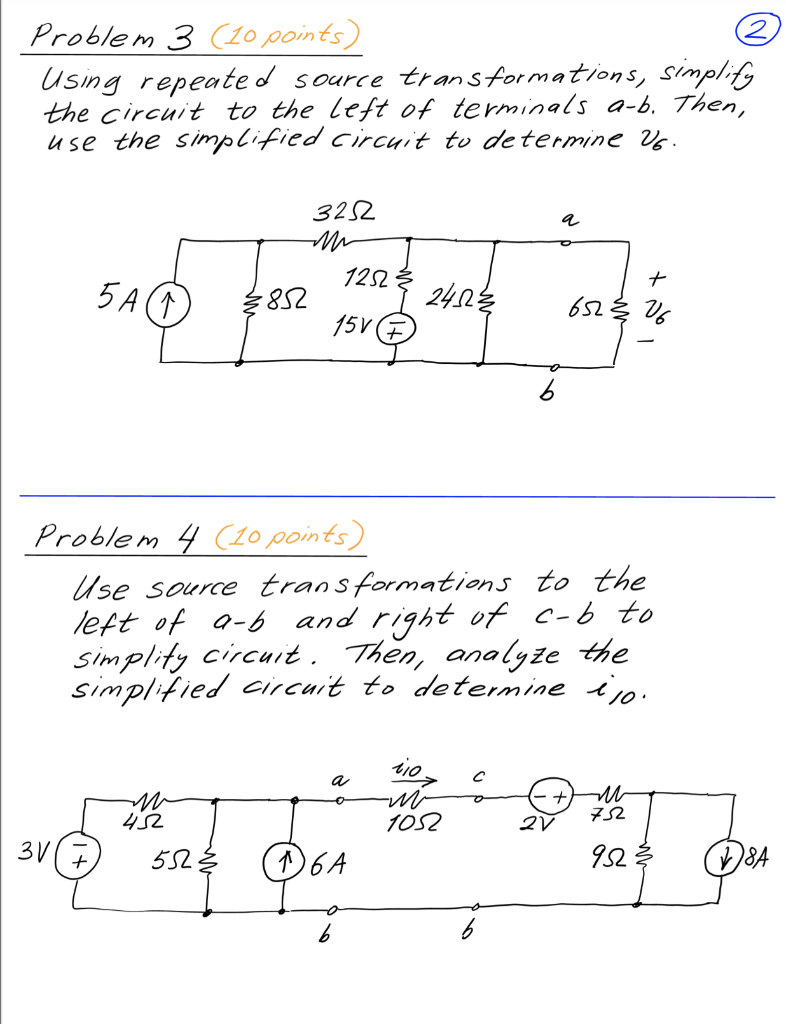 Problem 3 (10 points)
2
Using repeated source transformations, simplify
the circuit to the left of terminals a-b. Then,
use the simplified circuit to determine v₆.
32Ω
a
5A
8Ω
12Ω
15V
-
+
24Ω
6Ω
+
v₆
-
b
Problem 4 (10 points)
Use source transformations to the
left of a-b and right of c-b to
simplify circuit. Then, analyze the
simplified circuit to determine i₁₀.
a
i₁₀
c
4Ω
10Ω
- +
2V
7Ω
3V
-
+
5Ω
6A
9Ω
8A
b
b